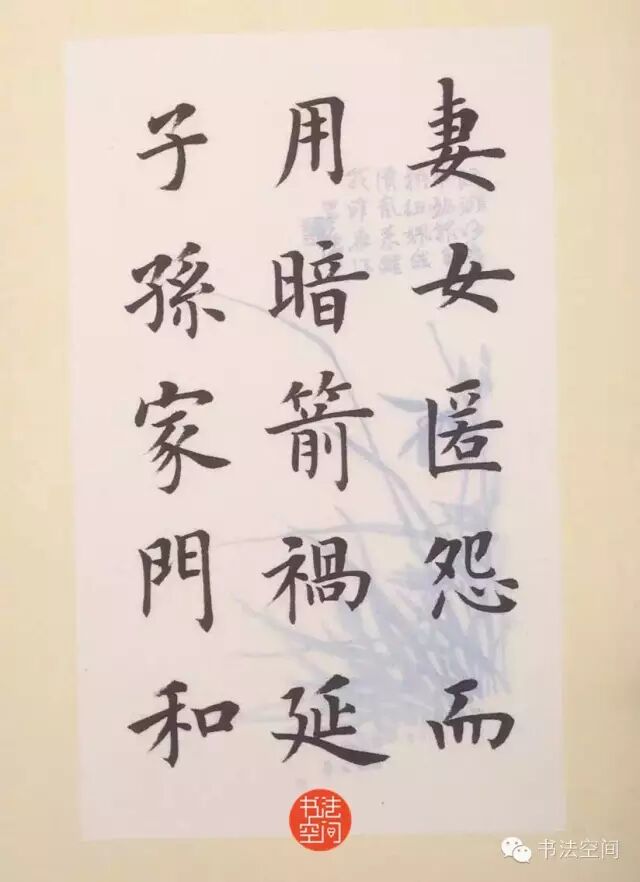 妻女匿怨而
用暗箭禍延
子孫家門和
书法
空间
书法空间